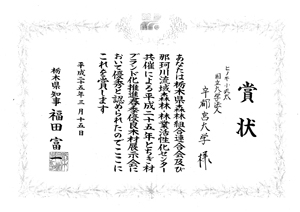 賞状
ヒノキ小丸太
国立大学法人
宇都宮大学 様
あなたは栃木県森林組合連合会及び
那珂川流域森林・林業活性化センター
共催による平成二十五年とちぎ材
ブランド化推進春季優良木材展示会に
おいて優秀と認められたのでここに
これを賞します
平成二十五年三月十五日
栃木県知事 福田富一